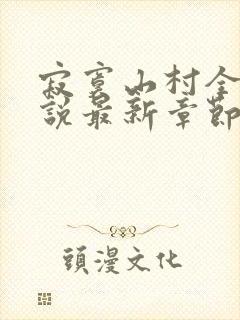 寂寞山村全
說最新章節
頭漫文化